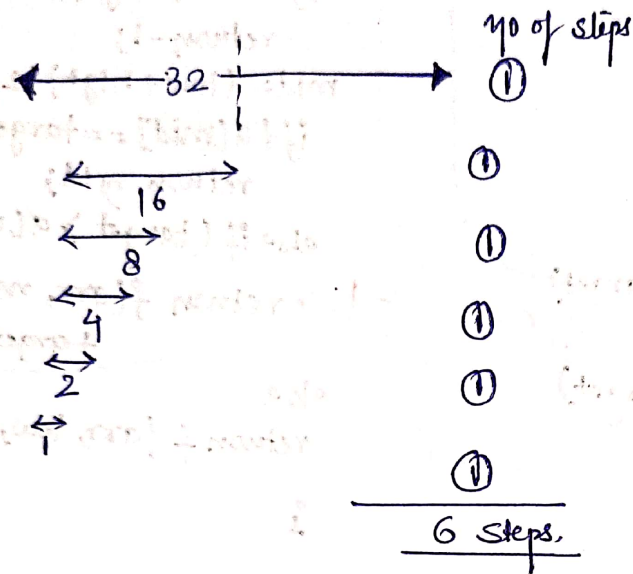 no of steps
32 1
16 1
8 1
4 1
2 1
1 1
6 Steps.